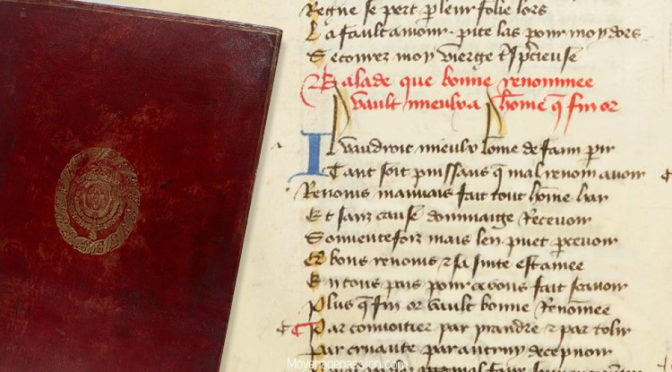 Regne se pert p leur folie lors
La fault amour pite las pour moy dors
Secourez moy vierge tspcieuse
Balade que bonne renommee
vault mieulx a home q fin or
Il vauldroit mieulx home de faim
Tant soit puissans q mal renom avoir
Renoms mauvais fait tout home hair
Et sanz cause dommaige Recevoir
Souventefoiz mais len puet pcevoir
bons renoms 7 sa suite est amee
En tous pais pour ce vous fait scavoir
Plus q fin or vault bonne Renomee
Par convoitier par prandre 7 par tolir
Par cruaute par autruy decepvoir
Moyenagepassion.com